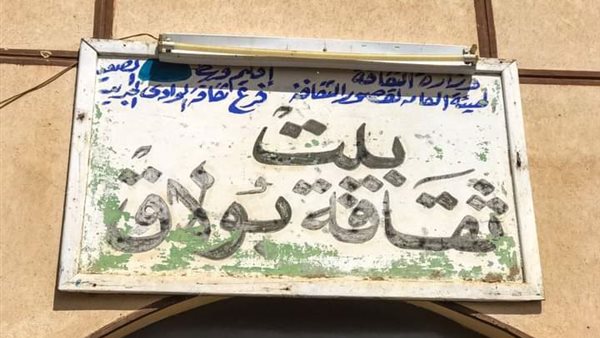 وزارة الثقافة إقليم وسط الصعيد
الهيئة العامة لقصور الثقافة فرع ثقافة الوادى الجديد
بيت
ثقافة بولاق